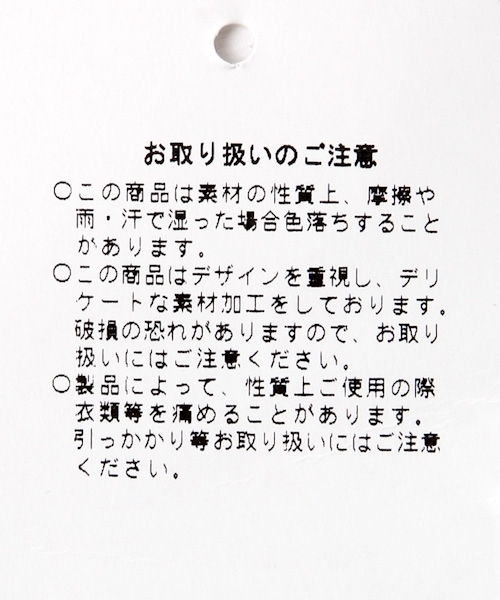 お取り扱いのご注意
○この商品は素材の性質上、摩擦や
雨・汗で湿った場合色落ちすること
があります。
○この商品はデザインを重視し、デリ
ケートな素材加工をしております。
破損の恐れがありますので、お取り
扱いにはご注意ください。
○製品によって、性質上ご使用の際
衣類等を痛めることがあります。
引っかかり等お取り扱いにはご注意
ください。